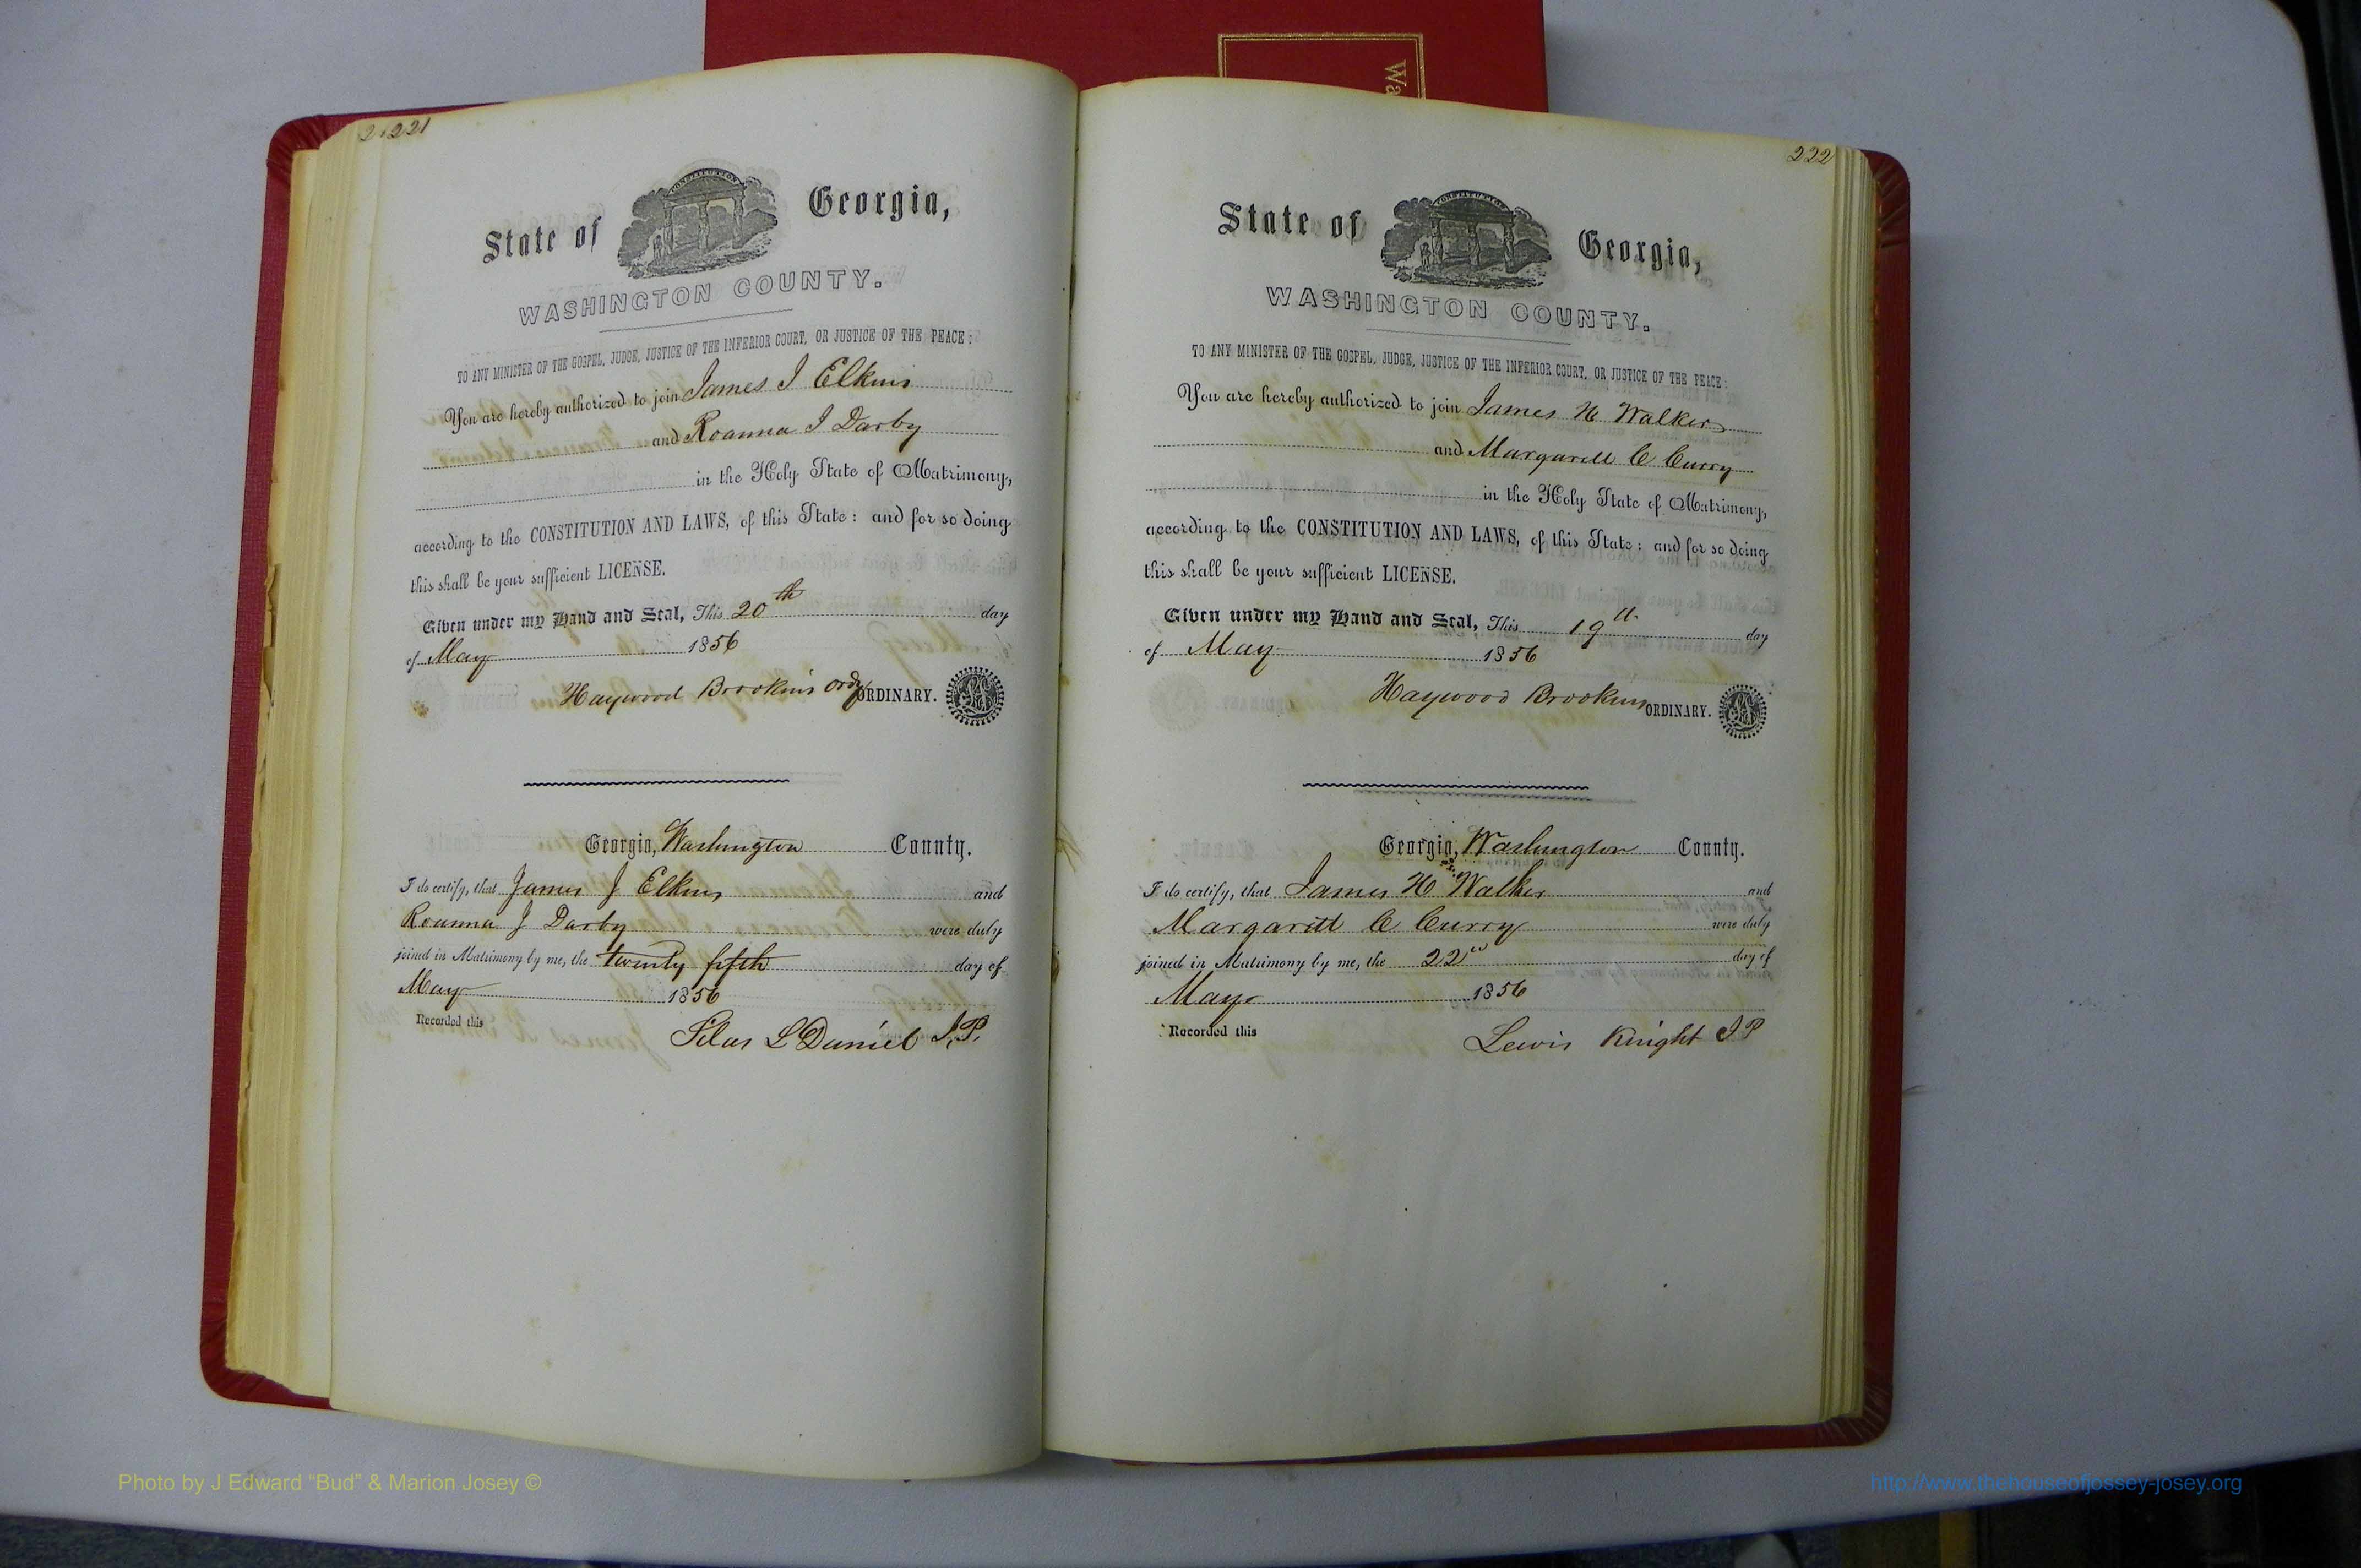 Wa
221
State of Georgia,
CONSTITUTION
WASHINGTON COUNTY.
TO ANY MINISTER OF THE GOSPEL, JUDGE, JUSTICE OF THE INFERIOR COURT, OR JUSTICE OF THE PEACE:
You are hereby authorized to join James J Elkins
and Roanna J Darby
in the Holy State of Matrimony,
according to the CONSTITUTION AND LAWS, of this State: and for so doing
this shall be your sufficient LICENSE.
Given under my Hand and Seal, This 20th day
of May 1856
Haywood Brookins Ordy ORDINARY.
Georgia, Washington County.
I do certify, that James J Elkins and
Roanna J Darby were duly
joined in Matrimony by me, the twenty fifth day of
May 1856
Recorded this
Silas L Daniel J.P.
222
State of Georgia,
CONSTITUTION
WASHINGTON COUNTY.
TO ANY MINISTER OF THE GOSPEL, JUDGE, JUSTICE OF THE INFERIOR COURT, OR JUSTICE OF THE PEACE:
You are hereby authorized to join James H Walker
and Margarett C Curry
in the Holy State of Matrimony,
according to the CONSTITUTION AND LAWS, of this State: and for so doing
this shall be your sufficient LICENSE.
Given under my Hand and Seal, This 19th day
of May 1856
Haywood Brookins ORDINARY.
Georgia, Washington County.
I do certify, that James H Walker and
Margarett C Curry were duly
joined in Matrimony by me, the 22nd day of
May 1856
Recorded this
Lewis Knight J P
Photo by J Edward “Bud” & Marion Josey ©
http://www.thehouseofjossey-josey.org